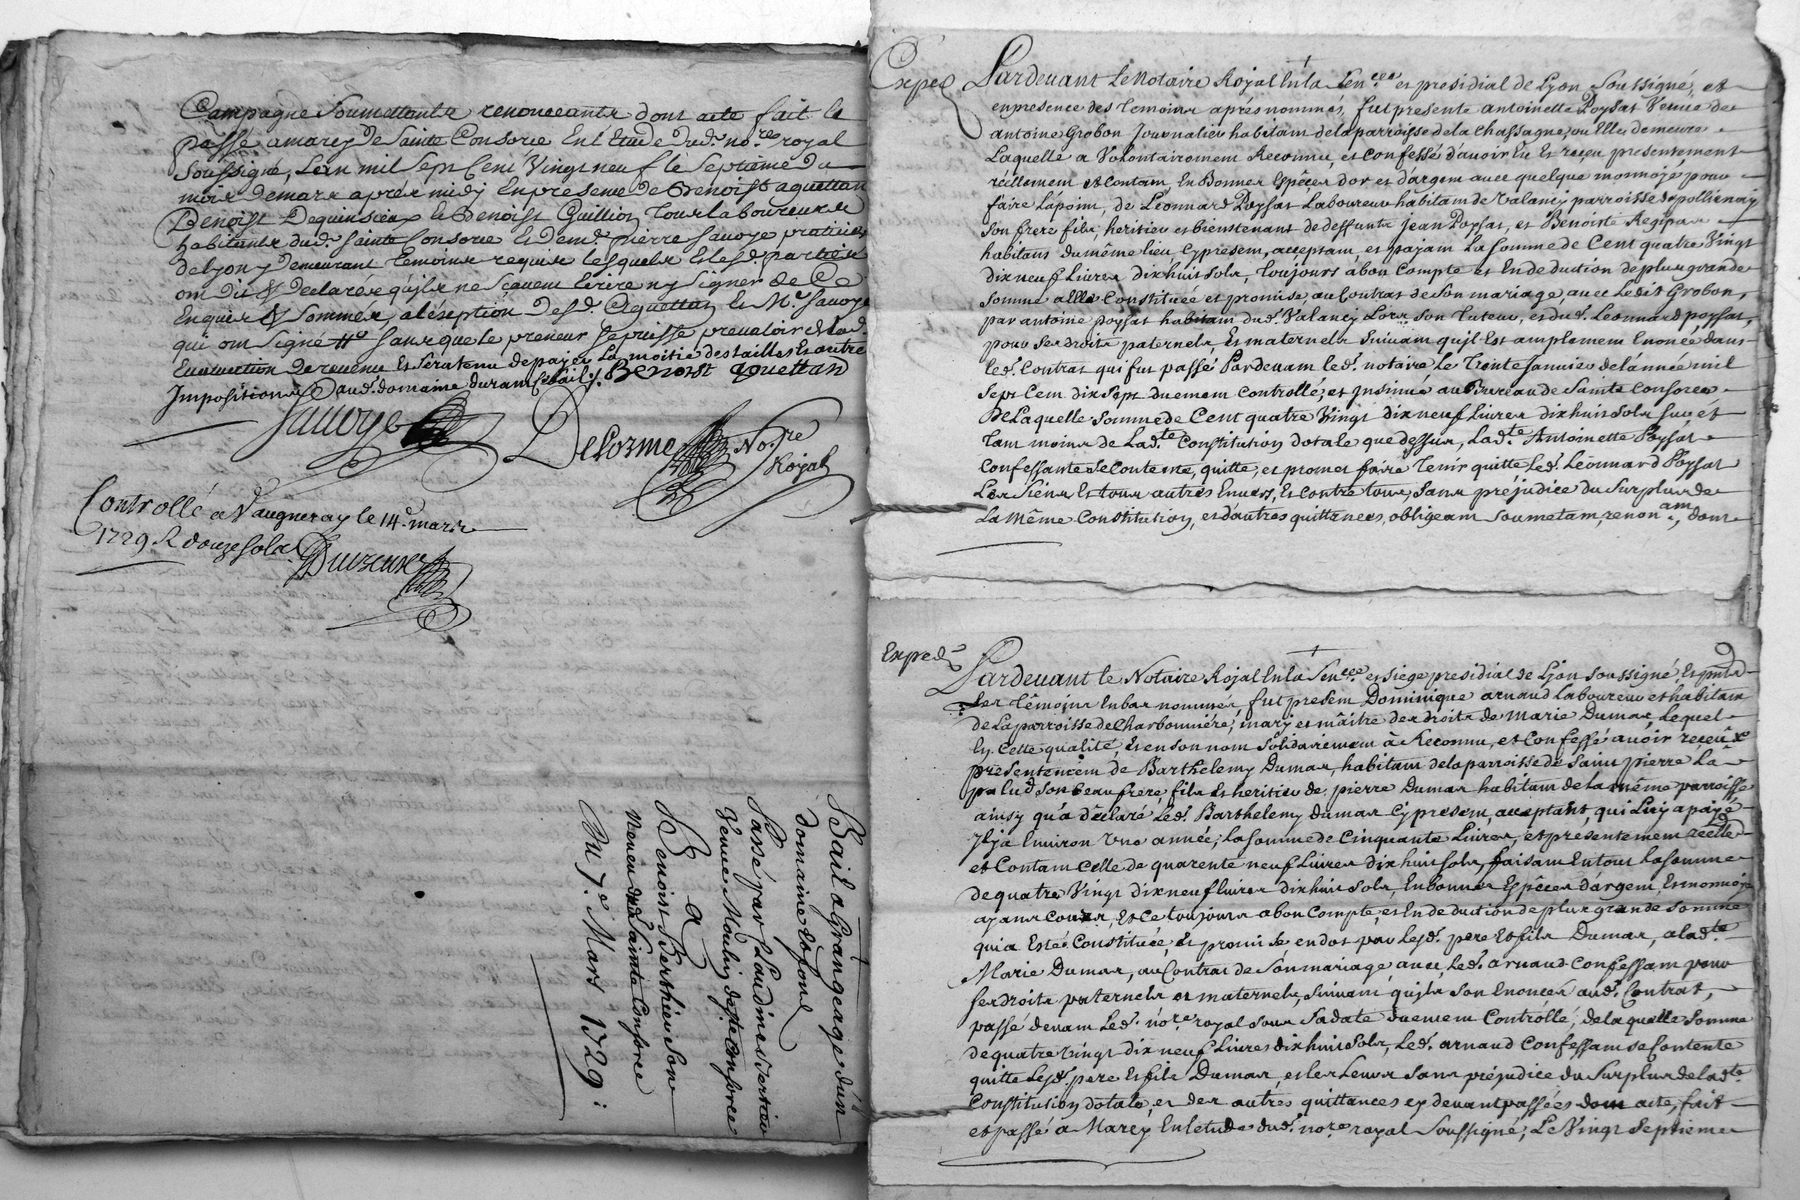 Campagne Soumettants renonceants dont acte fait &
passé a marcy de Sainte Consorce En l'Etude dud. no.re royal
soussigné, L'an mil sept Cent Vingt neuf & le Septième du
mois de mars après midy En presence de Benoist aguettan
Benoist Dequinsieux Et Benoist Guillion Tous Laboureurs
habitants dud. Sainte Consorce Et de m.e Pierre Sauoye praticien
de Lyon y demeurant temoins requis lesquels et lesd. parties
ont dit & declarer qu'ils ne Scauent Ecrire ny signer de Ce
Enquis & Sommes, a l'éxeption desd. Aguettan Et M.e Sauoye
qui ont signé sans que le preneur se puisse preualoir de lad.
Euocation de reuenu Et sera tenu de payer La moitié des tailles Et autres
Impositions aud. domaine durant Ce bail. Benoist aguettan
Sauoye
Delorme No.re
Royal
Controllé a Vaugneray le 14.e mars
1729 R douze Sols
Bail a Grangeage d'un
domaine et fond
Passé par Claudine
Veuue Moulin de S.te Conforce
a
Benoist Berthier Son
Neueu de Sainte Conforce
Du 7.e Mars 1729 :
Exped
Pardeuant Le Notaire Royal En la Sen.cee et presidial de Lyon Soussigné, et
en presence des Temoins après nommés, fut presente antoinette Poysat Veuue de
antoine Grobon Journalier habitant de la parroisse de la Chassagne, ou Elle demeure
Laquelle a Volontairement Reconnu, et Confessé d'auoir Eu Et receu presentement
réellement et Contant, En Bonnes Espêces d'or et d'argent auec quelque monnoye pour
faire L'apoint, de Léonnard Poysat Laboureur habitant de Valancy parroisse de pollienay
Son frere fils, heritier et bienstenant de deffunts Jean Poysat, et Benoiste Regipas
habitans du même lieu Cy present, acceptant, et payant La somme de Cent quatre Vingt
dix neuf Liures dix huit Sols, Toujours a bon Compte et En deduction de plus grande
Somme a Elle Constituée et promise, au Contrat de Son mariage, auec Ledit Grobon,
par antoine poysat habitant dud. Valancy Lors Son Tuteur, et dud. Léonnard poysat,
pour Ses droits paternels, Et maternels Suiuant qu'il Est amplement Enoncé dans
led. Contrat qui fut passé Pardeuant led. notaire Le Trente Januier de l'année mil
Sept Cent dix Sept duement Controllé, et Insinué au Bureau de Sainte Consorce
De Laquelle Somme de Cent quatre Vingt dix neuf Liures dix huit Sols
Tant moins de Lad.te Constitution dotale que dessus, Lad.te Antoinette Poysat
Confessante Se Contente, quitte, et promet faire Tenir quitte Led. Léonnard Poysat
Les Siens Et tous autres Enuers, Et Contre tous, Sans préjudice du Surplus de
La même Constitution, et d'autres quittances, obligeant Soumetant, renon.ant, dont
9
Exped.
Pardeuant le Notaire Royal En la Sen.cee et siege presidial de Lyon Soussigné, Et
Les Témoins En bas nommés, fut present Dominique arnaud Laboureur et habitant
de La parroisse de Charbonniére, mary et mâitre des droits de Marie Dumas, Lequel
En Cette qualité, & en son nom Solidairement à Reconnu, et Confessé auoir receu
présentement de Barthelemy Dumas, habitant de la parroisse de Saint pierre La
palud Son beau frere, fils et heritier de pierre Dumas habitant de la même parroisse
ainsy qu'a déclaré Led. Barthelemy dumas Cy present, acceptant, qui Luy a payé
Il y a Enuiron Une année, la Somme de Cinquante Liures, et presentement réelle
et Contant Celle de quarente neuf Liures dix huit Sols, faisant En tout La Somme
de quatre Vingt dix neuf Liures dix huit Sols, En bonnes Espêces d'argent, Et monnoye
ayant Cours, Et Ce toujours a bon Compte, et En deduction de plus grande Somme
qui a Estée Constituée & promise en dot par Lesd. pere Et fils Dumas, a lad.te
Marie Dumas, au Contrat de Son mariage auec, Led. arnaud Confessant pour
Ses droits paternels et maternels, Suiuant qu'ils Son Enoncés aud. Contrat,
passé deuant Led. no.re royal Sous Sa date duement Controllé, de laquelle Somme
de quatre vingt dix neuf Liures dix huit Sols, Led. arnaud Confessant Se Contente
quitte Lesd. pere Et fils Dumas, et les Leurs Sans préjudice du Surplus de lad.te
Constitution dotale, et des autres quittances cy deuant passées dont acte, fait
et passé a Marcy En l'etude dud. no.re royal Soussigné, Le Vingt Septieme